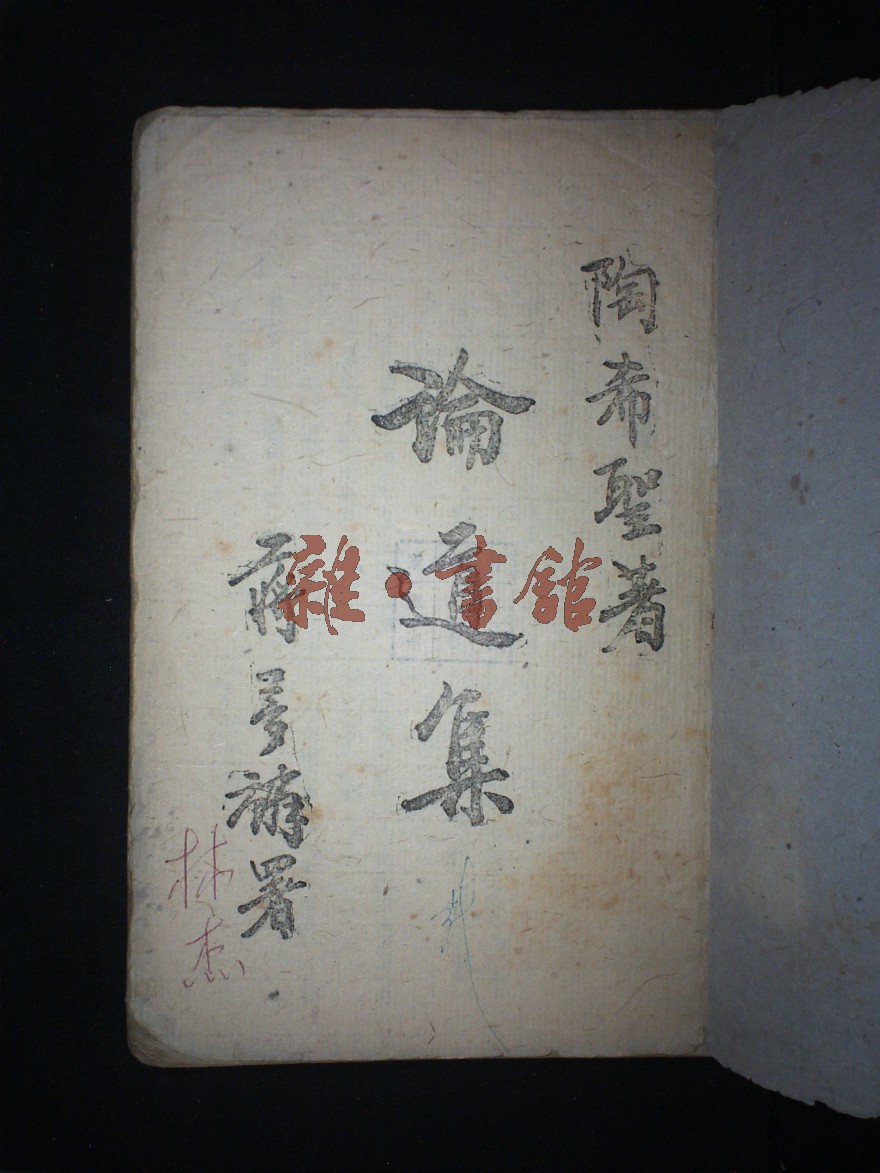 陶希聖著
論道集
蔣夢麟署
林杰
雜·書館